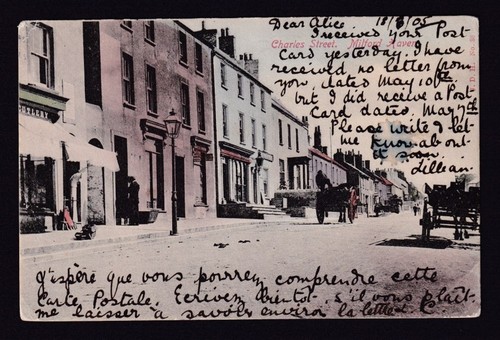 Dear Alice. 18/6/05
I received your Post
Charles Street, Milford Haven
Card yesterday. I have
received no letter from
you, dated May 10th.
but I did receive a Post
Card dated, May 7th
Please write & let
me know about
it soon.
Lillian.
J'espère que vous pourrez comprendre cette
Carte Postale. Ecrivez bientot. s'il vous plait.
me laisser à savoir